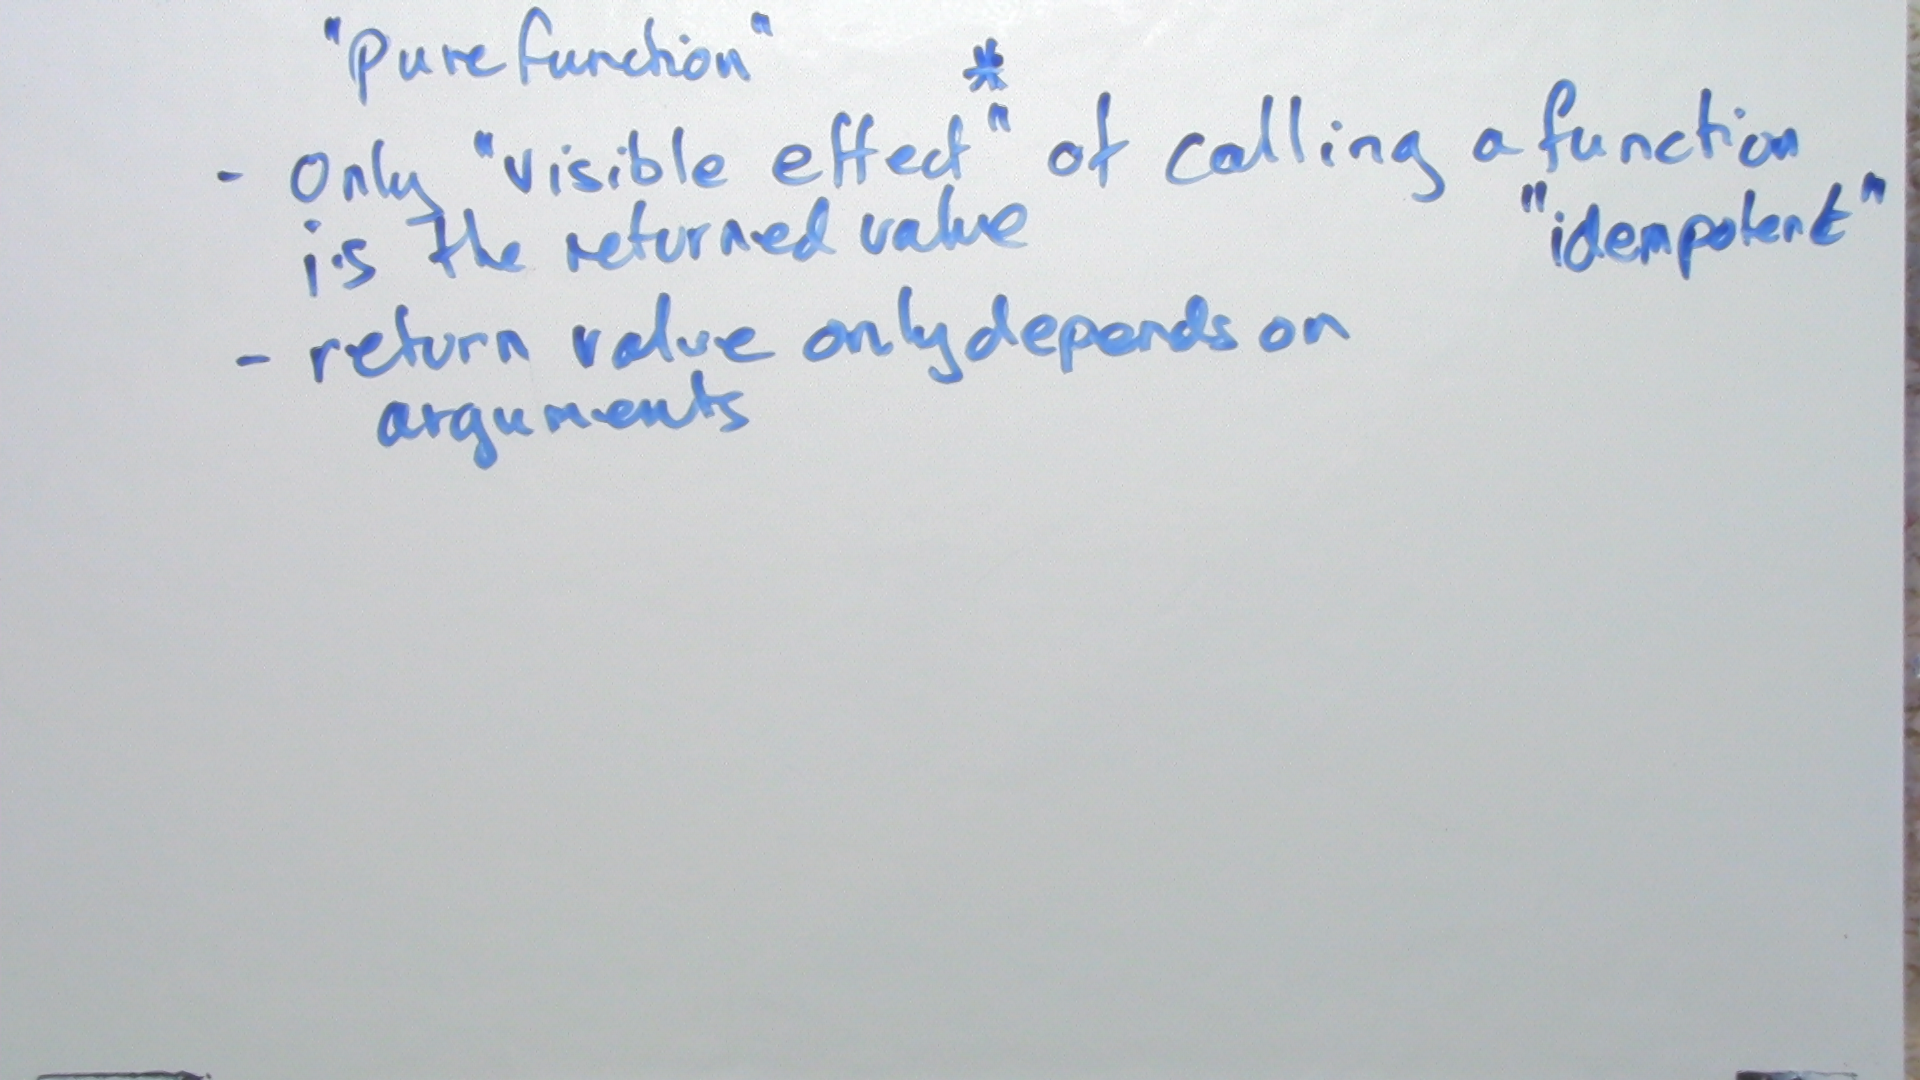 "pure function"
*
- Only "visible effect" of calling a function
is the returned value
"idempotent"
- return value only depends on
arguments